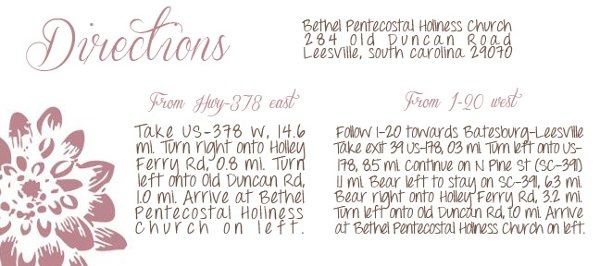 Directions
Bethel Pentecostal Holiness Church
284 Old Duncan Road
Leesville, south carolina 29070
From Hwy-378 east
Take US-378 W, 14.6
mi. Turn right onto Holley
Ferry Rd, 0.8 mi. Turn
left onto Old Duncan Rd,
1.0 mi. Arrive at Bethel
Pentecostal Holiness
Church on left.
From I-20 west
Follow I-20 towards Batesburg-Leesville
Take exit 39 US-178, 0.3 mi. Turn left onto US-
178, 8.5 mi. Continue on N Pine St (SC-391)
1.1 mi. Bear left to stay on SC-391, 6.3 mi.
Bear right onto Holley Ferry Rd, 3.2 mi.
Turn left onto Old Duncan Rd, 1.0 mi. Arrive
at Bethel Pentecostal Holiness Church on left.